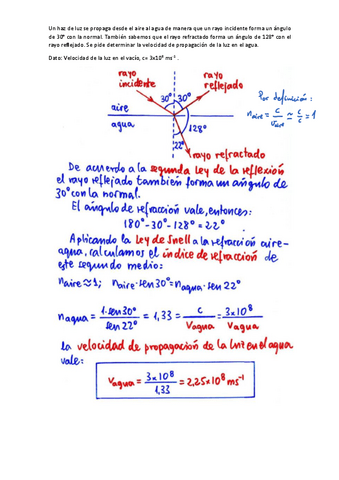 Un haz de luz se propaga desde el aire al agua de manera que un rayo incidente forma un ángulo
de 30° con la normal. También sabemos que el rayo refractado forma un ángulo de 128° con el
rayo reflejado. Se pide determinar la velocidad de propagación de la luz en el agua.
Dato: Velocidad de la luz en el vacío, c= 3x10⁸ ms⁻¹ .
rayo incidente
rayo reflejado
30° 30°
aire
agua
128°
22°
rayo refractado
Por definición:
n aire = c / v aire ≃ c / c = 1
De acuerdo a la segunda Ley de la reflexión
el rayo reflejado también forma un ángulo de
30° con la normal.
El ángulo de refracción vale, entonces:
180°-30°-128°=22°
Aplicando la Ley de Snell a la refracción aire-
agua, calculamos el índice de refracción de
este segundo medio:
n aire ≃ 1; n aire · sen 30° = n agua · sen 22°
n agua = 1·sen 30° / sen 22° = 1,33 = c / v agua = 3x10⁸ / v agua
La velocidad de propagación de la luz en el agua
vale:
v agua = 3x10⁸ / 1,33 = 2,25x10⁸ ms⁻¹